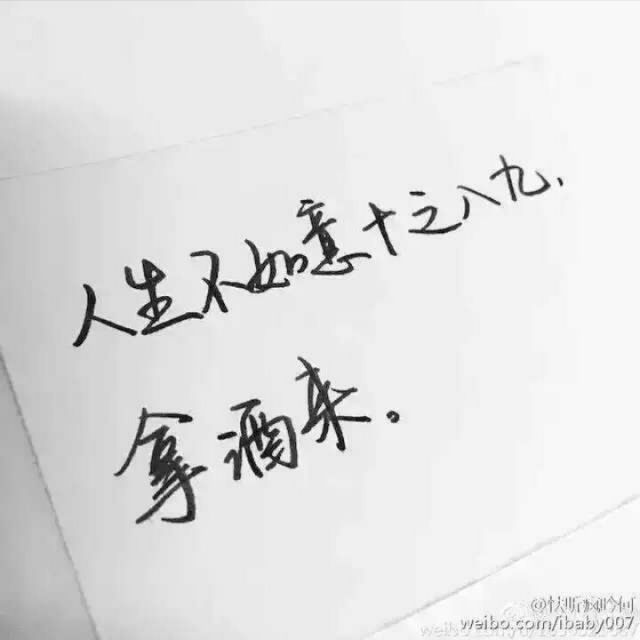 人生不如意十之八九,
拿酒来。
weibo.com/ibaby007